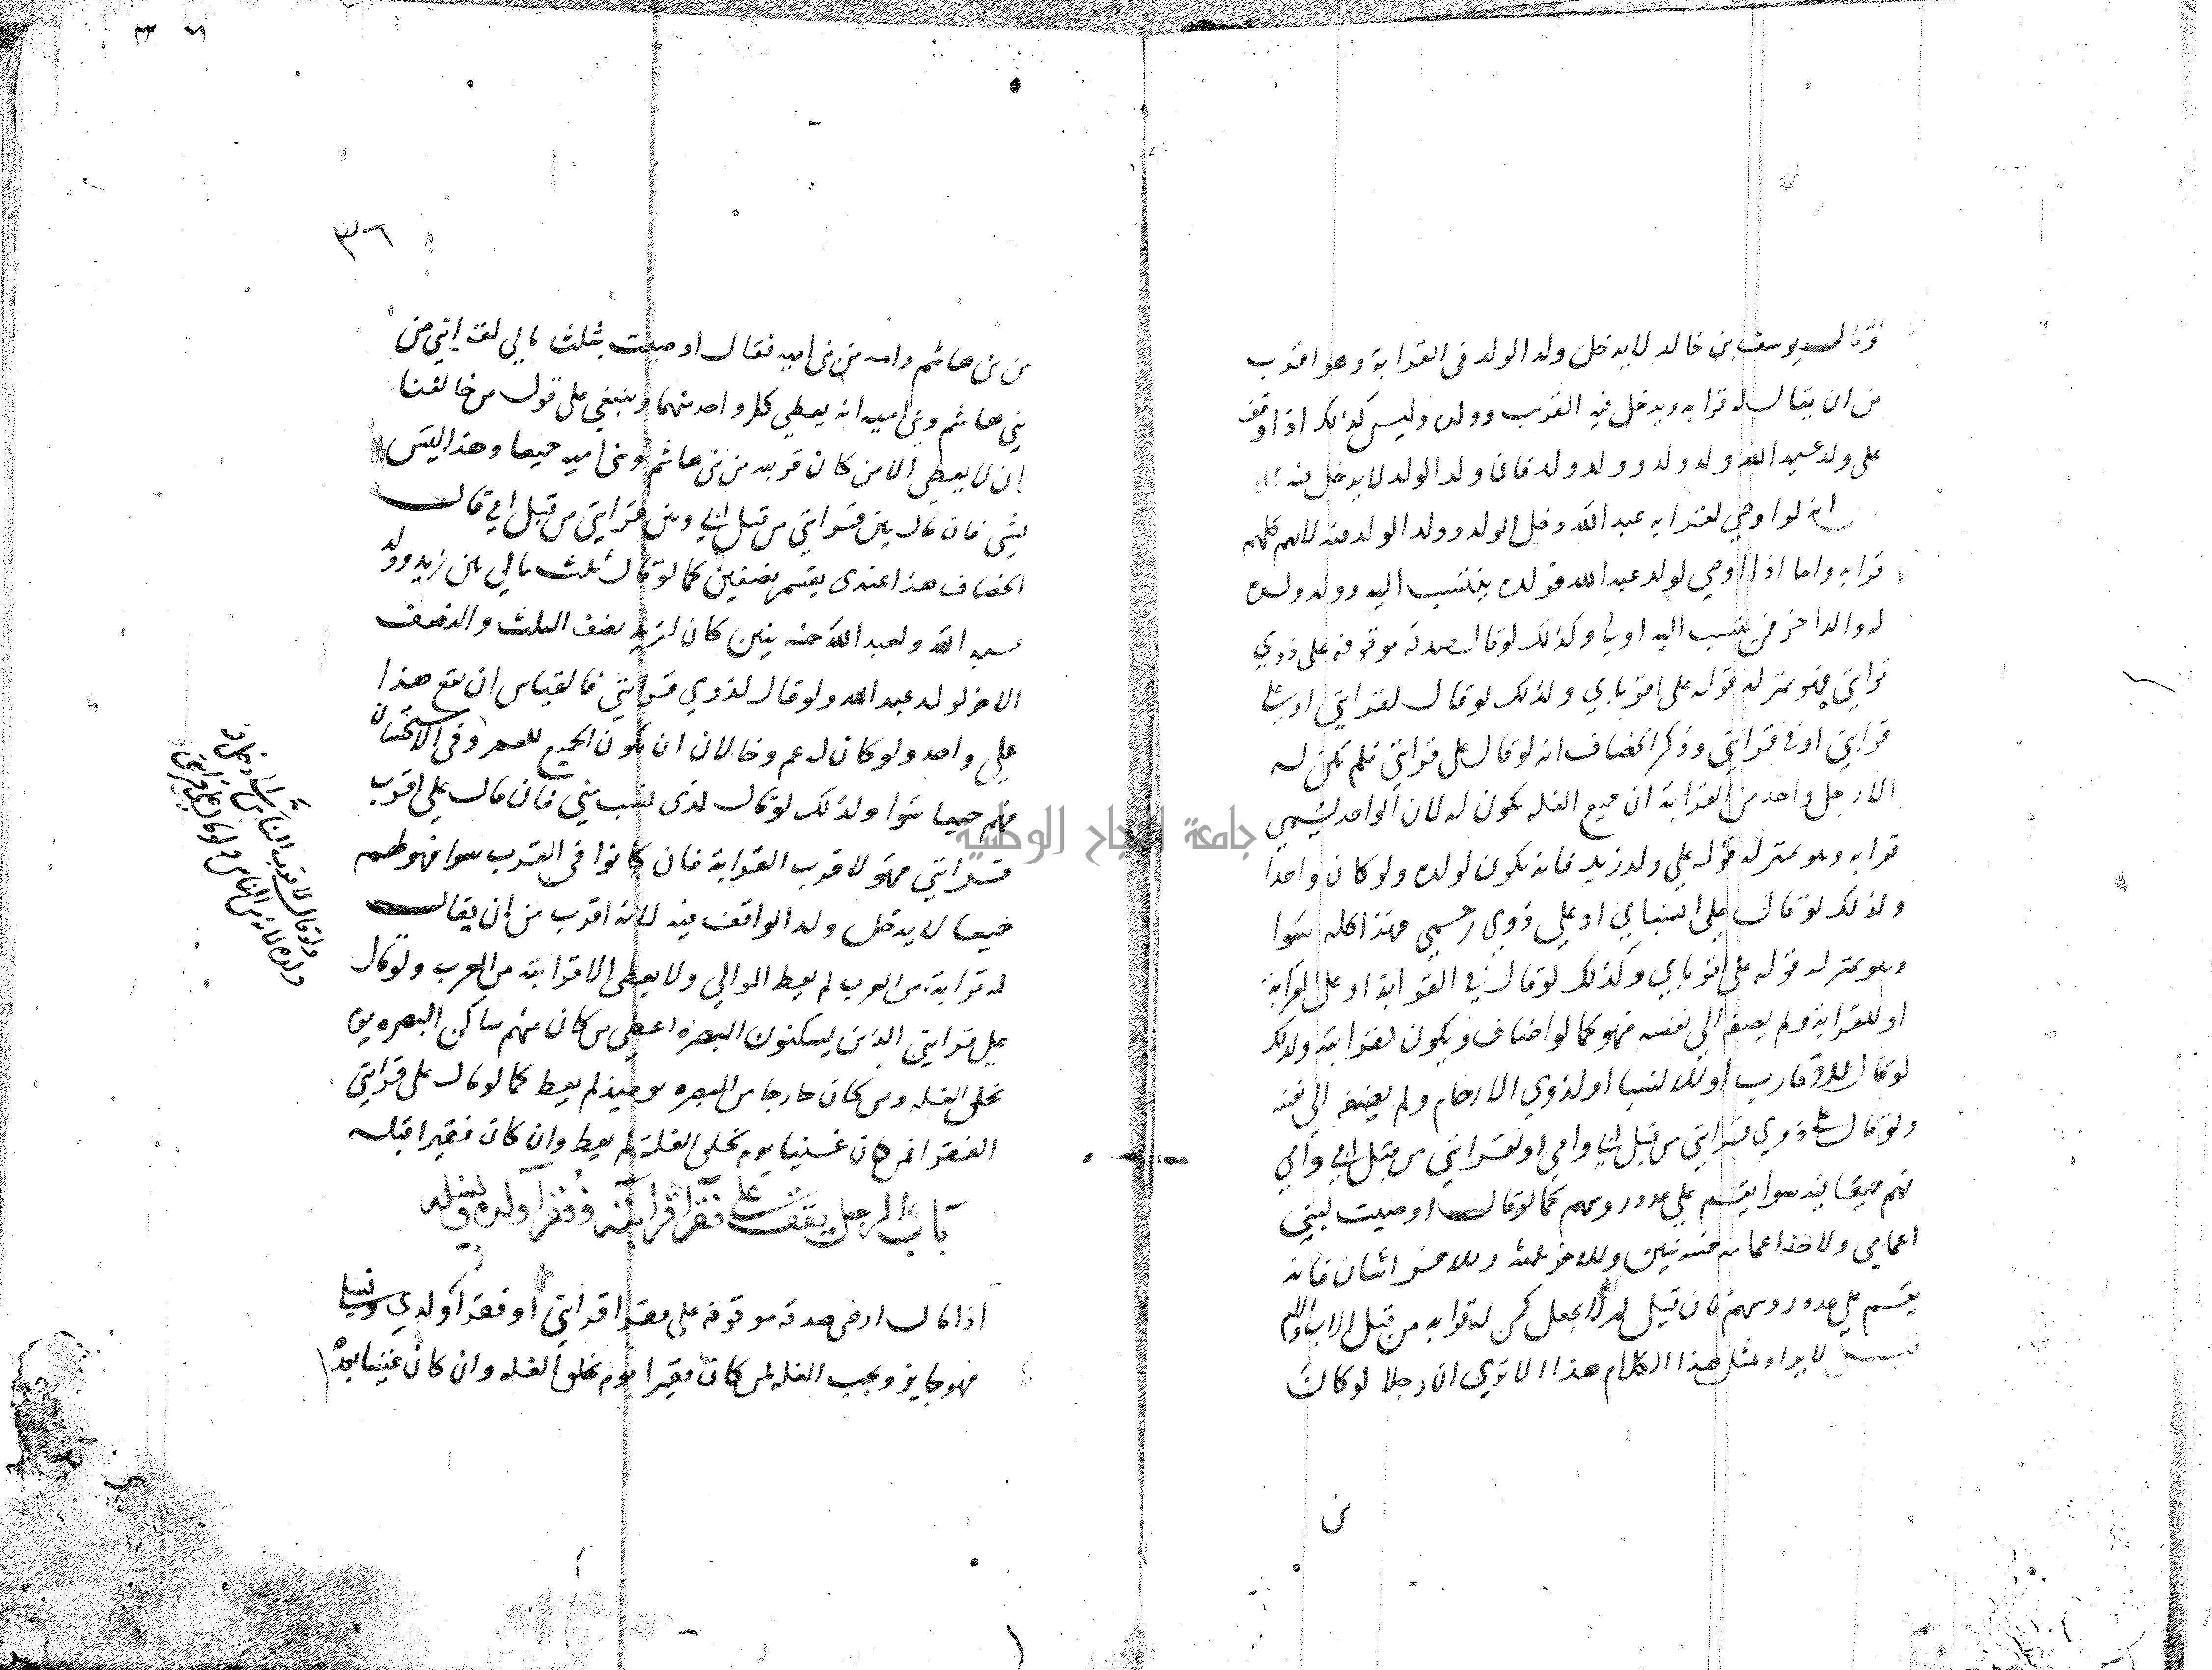 وقال يوسف بن خالد لا يدخل ولد الولد في القرابة وهو اقرب
من ان يقال له قرابه ويدخل فيه القريب وولده وليس كذلك اذا اوقف
على ولد عبد الله وله ولد وولد ولد فان ولد الولد لا يدخل فيه
انه لو اوصى لقرابه عبد الله دخل الولد وولد الولد فيه لانهم كلهم
قرابه واما اذا اوصى لولد عبد الله فولده ينتسب اليه وولد ولده
له والد اخر فمن ينسب اليه اولى وكذلك لو قال صدقه موقوفه على ذوي
قرابتي فهو بمنزله قوله على اقربائي وكذلك لو قال لقرابتي او على
قرابتي او في قرابتي وذكر الخصاف انه لو قال على قرابتي فلم تكن له
الا رجل واحد من القرابة ان جميع الغله يكون له لان الواحد يسمى
قرابه وهو بمنزله قوله على ولد زيد فانه يكون لولده ولو كان واحدا
وكذلك لو قال على انسبائي او على ذوي رحمي فهذا كله سوا
وهو بمنزله قوله على اقربائي وكذلك لو قال في القرابة او على القرابة
او للقرابة ولم يضفه الى نفسه فهو كما لو اضاف ويكون لقرابته وكذلك
لو قال للاقارب او للانسبا او لذوي الارحام ولم يضفه الى نفسه
ولو قال على ذوي قرابتي من قبل ابي وامي او لقرابتي من قبل ابي وامي
فهم جميعا فيه سوا يقسم على عدد روسهم كما لو قال اوصيت لبني
اعمامي ولاحد اعمامه خمسه بنين وللاخر ثلثه وللاخر اثنان فانه
يقسم على عدد روسهم فان قيل لم لا يجعل لمن له قرابه من قبل الاب والام
قيل لا يراد بمثل هذا الكلام هذا الا ترى ان رجلا لو كان
من
٣٦
من بني هاشم وامه من بني اميه فقال اوصيت بثلث مالي لقرابتي من
بني هاشم وبني اميه انه يعطي كل واحد منهما وينبغي على قول من خالفنا
ان لا يعطي الا من كان قريبه من بني هاشم وبني اميه جميعا وهذا ليس
بشي فان قال بين قرابتي من قبل ابي وبين قرابتي من قبل امي قال
الخصاف هذا عندي يقسم نصفين كما لو قال ثلث مالي بين زيد وولد
عبد الله ولعبد الله خمسه بنين كان لزيد نصف الثلث والنصف
الاخر لولد عبد الله ولو قال لذوي قرابتي فالقياس ان يقع هذا
على واحد ولو كان له عم وخالان ان يكون الجميع للعم وفي الاستحسان
فهم جميعا سوا وكذلك لو قال لذي نسب مني فان قال على اقرب
قرابتي فهو لاقرب القرابة فان كانوا في القرب سوا فهو لهم
جميعا لا يدخل ولد الواقف فيه لانه اقرب من ان يقال
له قرابة من العرب لم يعط الموالي ولا يعطى الا قرابته من العرب ولو قال
على قرابتي الذين يسكنون البصره اعطي من كان منهم ساكن البصره يوم
تخلق الغله ومن كان خارجا من البصره يوميذ لم يعط كما لو قال على قرابتي
الفقرا فمن كان غنيا يوم تخلق الغلة لم يعط وان كان فقيرا قبله
باب الرجل يقف على فقرا قرابته وفقرا ولده ونسله
اذا قال ارضي صدقه موقوفه على فقرا قرابتي او فقرا ولدي ونسلي
فهو جايز ويجب الغله لمن كان فقيرا يوم تخلق الغله وان كان غنيا بعده
ولو قال لاقرب الناس دخل فيه
ولده لانه من الناس ولو قال على قرابتي
جامعة النجاح الوطنية